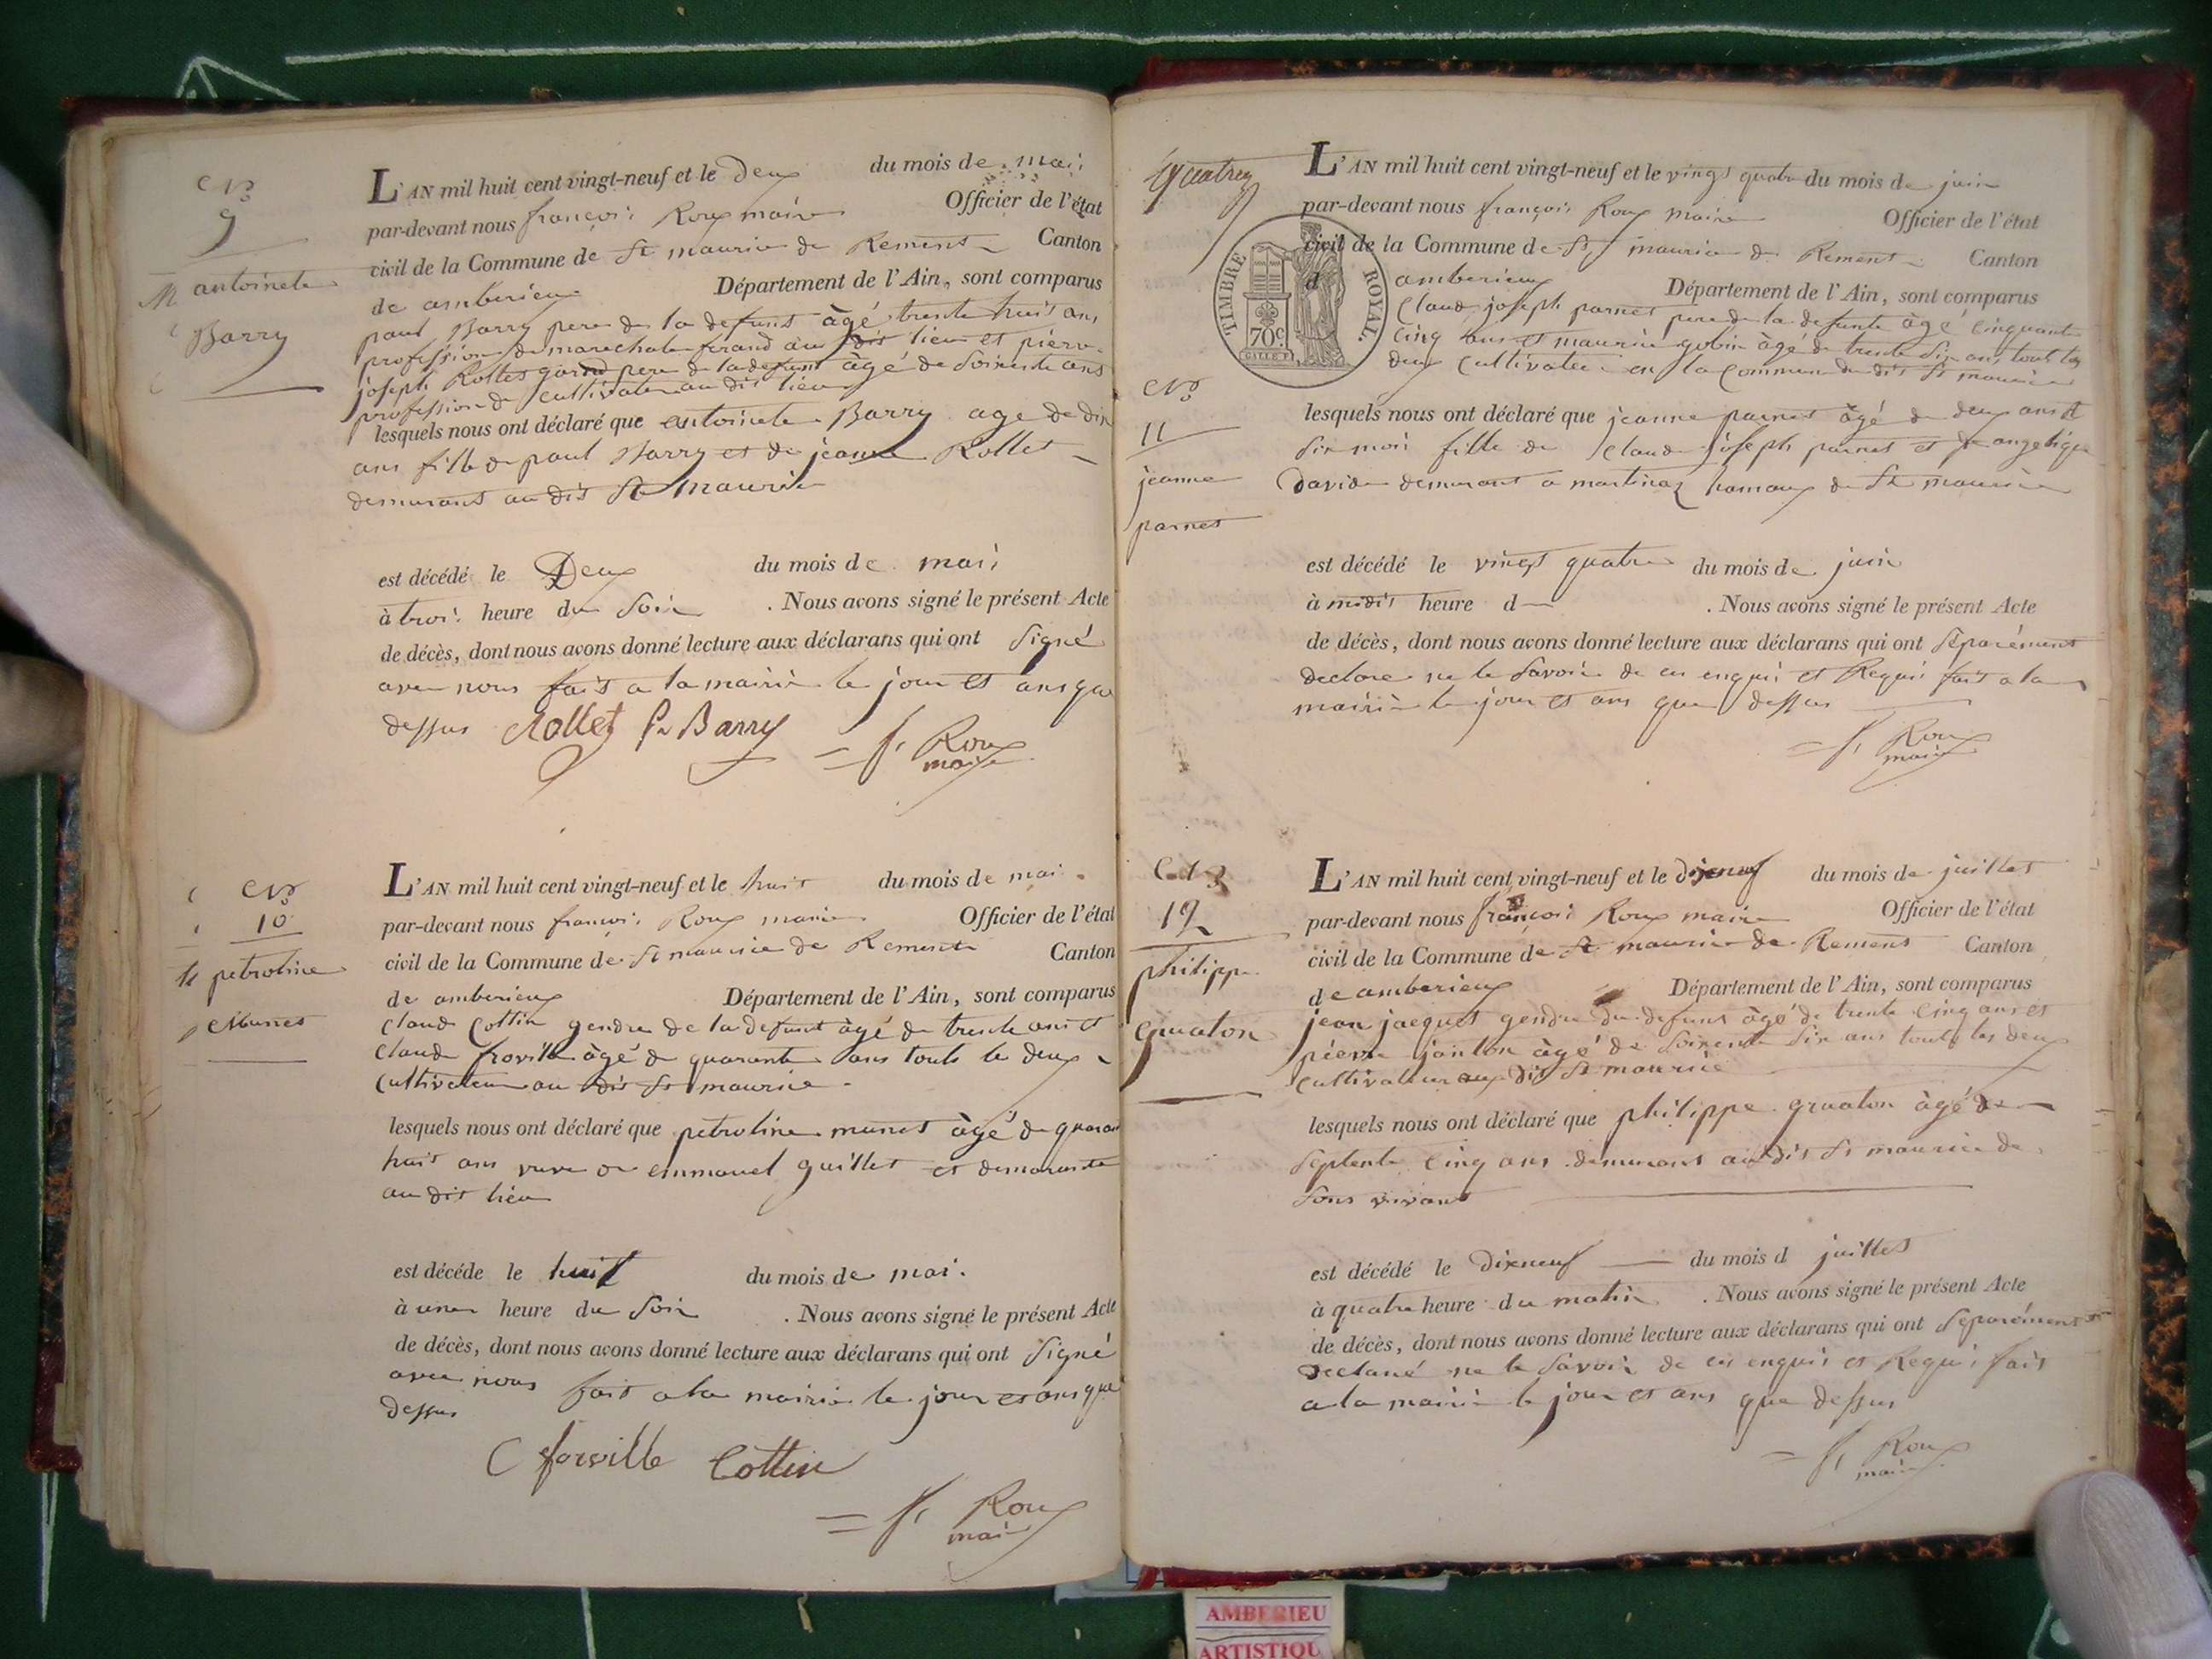 No
9
antoinete
Barry
L'AN mil huit cent vingt-neuf et le deux du mois de mai
par-devant nous françois Roux maire Officier de l'état
civil de la Commune de St maurice de Rement Canton
de amberieux Département de l'Ain, sont comparus
paul Barry pere de la defunt âgé trente huit ans
profession de marechale ferand au dit lieu et pierre
joseph Rollet grand pere de la defunt âgé de soixente ans
profession de cultivateur au dit lieu
lesquels nous ont déclaré que antoinete Barry age de dix
ans fille de paul Barry et de jeanne Rollet
demurant au dit St maurice
est décédé le Deux du mois de mai
à troi heure du soir . Nous avons signé le présent Acte
de décès, dont nous avons donné lecture aux déclarans qui ont signé
avec nous fait a la mairie le jour et ans que
dessus Rollet P. Barry = f. Roux
maire
No
10
petroline
Munet
L'AN mil huit cent vingt-neuf et le huit du mois de mai
par-devant nous françois Roux maire Officier de l'état
civil de la Commune de St maurice de Rement Canton
de amberieux Département de l'Ain, sont comparus
Claude Cottin gendre de la defunt âgé de trente ans et
Claude froville âgé de quarante ans touts le deux
Cultivateur au dit St maurice
lesquels nous ont déclaré que petroline munet âgé de quarante
huit ans veuve de emmanuel guillet et demurante
au dit lieu
est décéde le huit du mois de mai.
à une heure du soir . Nous avons signé le présent Acte
de décès, dont nous avons donné lecture aux déclarans qui ont signé
avec nous fait a la mairie le jour et ans que
dessus
C forville Cottin
= f. Roux
maire
quatre
TIMBRE ROYAL.
70c
No
11
jeanne
parnet
L'AN mil huit cent vingt-neuf et le vingt quatre du mois de juin
par-devant nous françois Roux maire Officier de l'état
civil de la Commune de St maurice de Rement Canton
d amberieux Département de l'Ain, sont comparus
Claude joseph parnet pere de la defunte âgé cinquante
cinq ans et maurice gobin âgé de trente six ans, touts les
deux Cultivateur en la commune du dit St maurice
lesquels nous ont déclaré que jeanne parnet âgé de deux ans et
six moi fille de Claude joseph parnet et de angelique
David demurant a martinaz hamaux de St maurice
est décédé le vingt quatre du mois de juin
à midit heure d . Nous avons signé le présent Acte
de décès, dont nous avons donné lecture aux déclarans qui ont séparément
declare ne le savoir de ce enquis et Requi fait a la
mairie le jour et ans que dessus
= f. Roux
maire
No
12
philippe
gruaton
L'AN mil huit cent vingt-neuf et le dixneuf du mois de juillet
par-devant nous françois Roux maire Officier de l'état
civil de la Commune de St maurice de Remens Canton
de amberieux Département de l'Ain, sont comparus
jean jacquet gendre du defunt âgé de trente cinq ans et
pierre janton âgé de soixente six ans touts les deux
cultivateur au dit St maurice
lesquels nous ont déclaré que philippe gruaton âgé de
septente cinq ans demurant au dit St maurice de
sons vivant
est décédé le dixneuf du mois d juillet
à quatre heure du matin . Nous avons signé le présent Acte
de décès, dont nous avons donné lecture aux déclarans qui ont séparément
declaré ne le savoir de ce enquis et Requi fait
a la mairie le jour et ans que dessus
= f. Roux
maire
AMBERIEU
ARTISTIQU